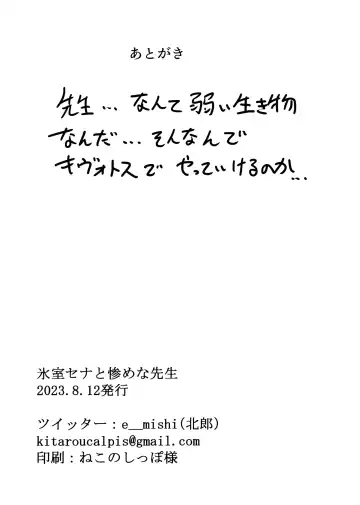 あとがき
先生…なんて弱い生き物
なんだ…そんなんで
キヴォトスでやっていけるのか…
氷室セナと惨めな先生
2023.8.12発行
ツイッター：e__mishi(北郎)
kitaroucalpis@gmail.com
印刷：ねこのしっぽ様